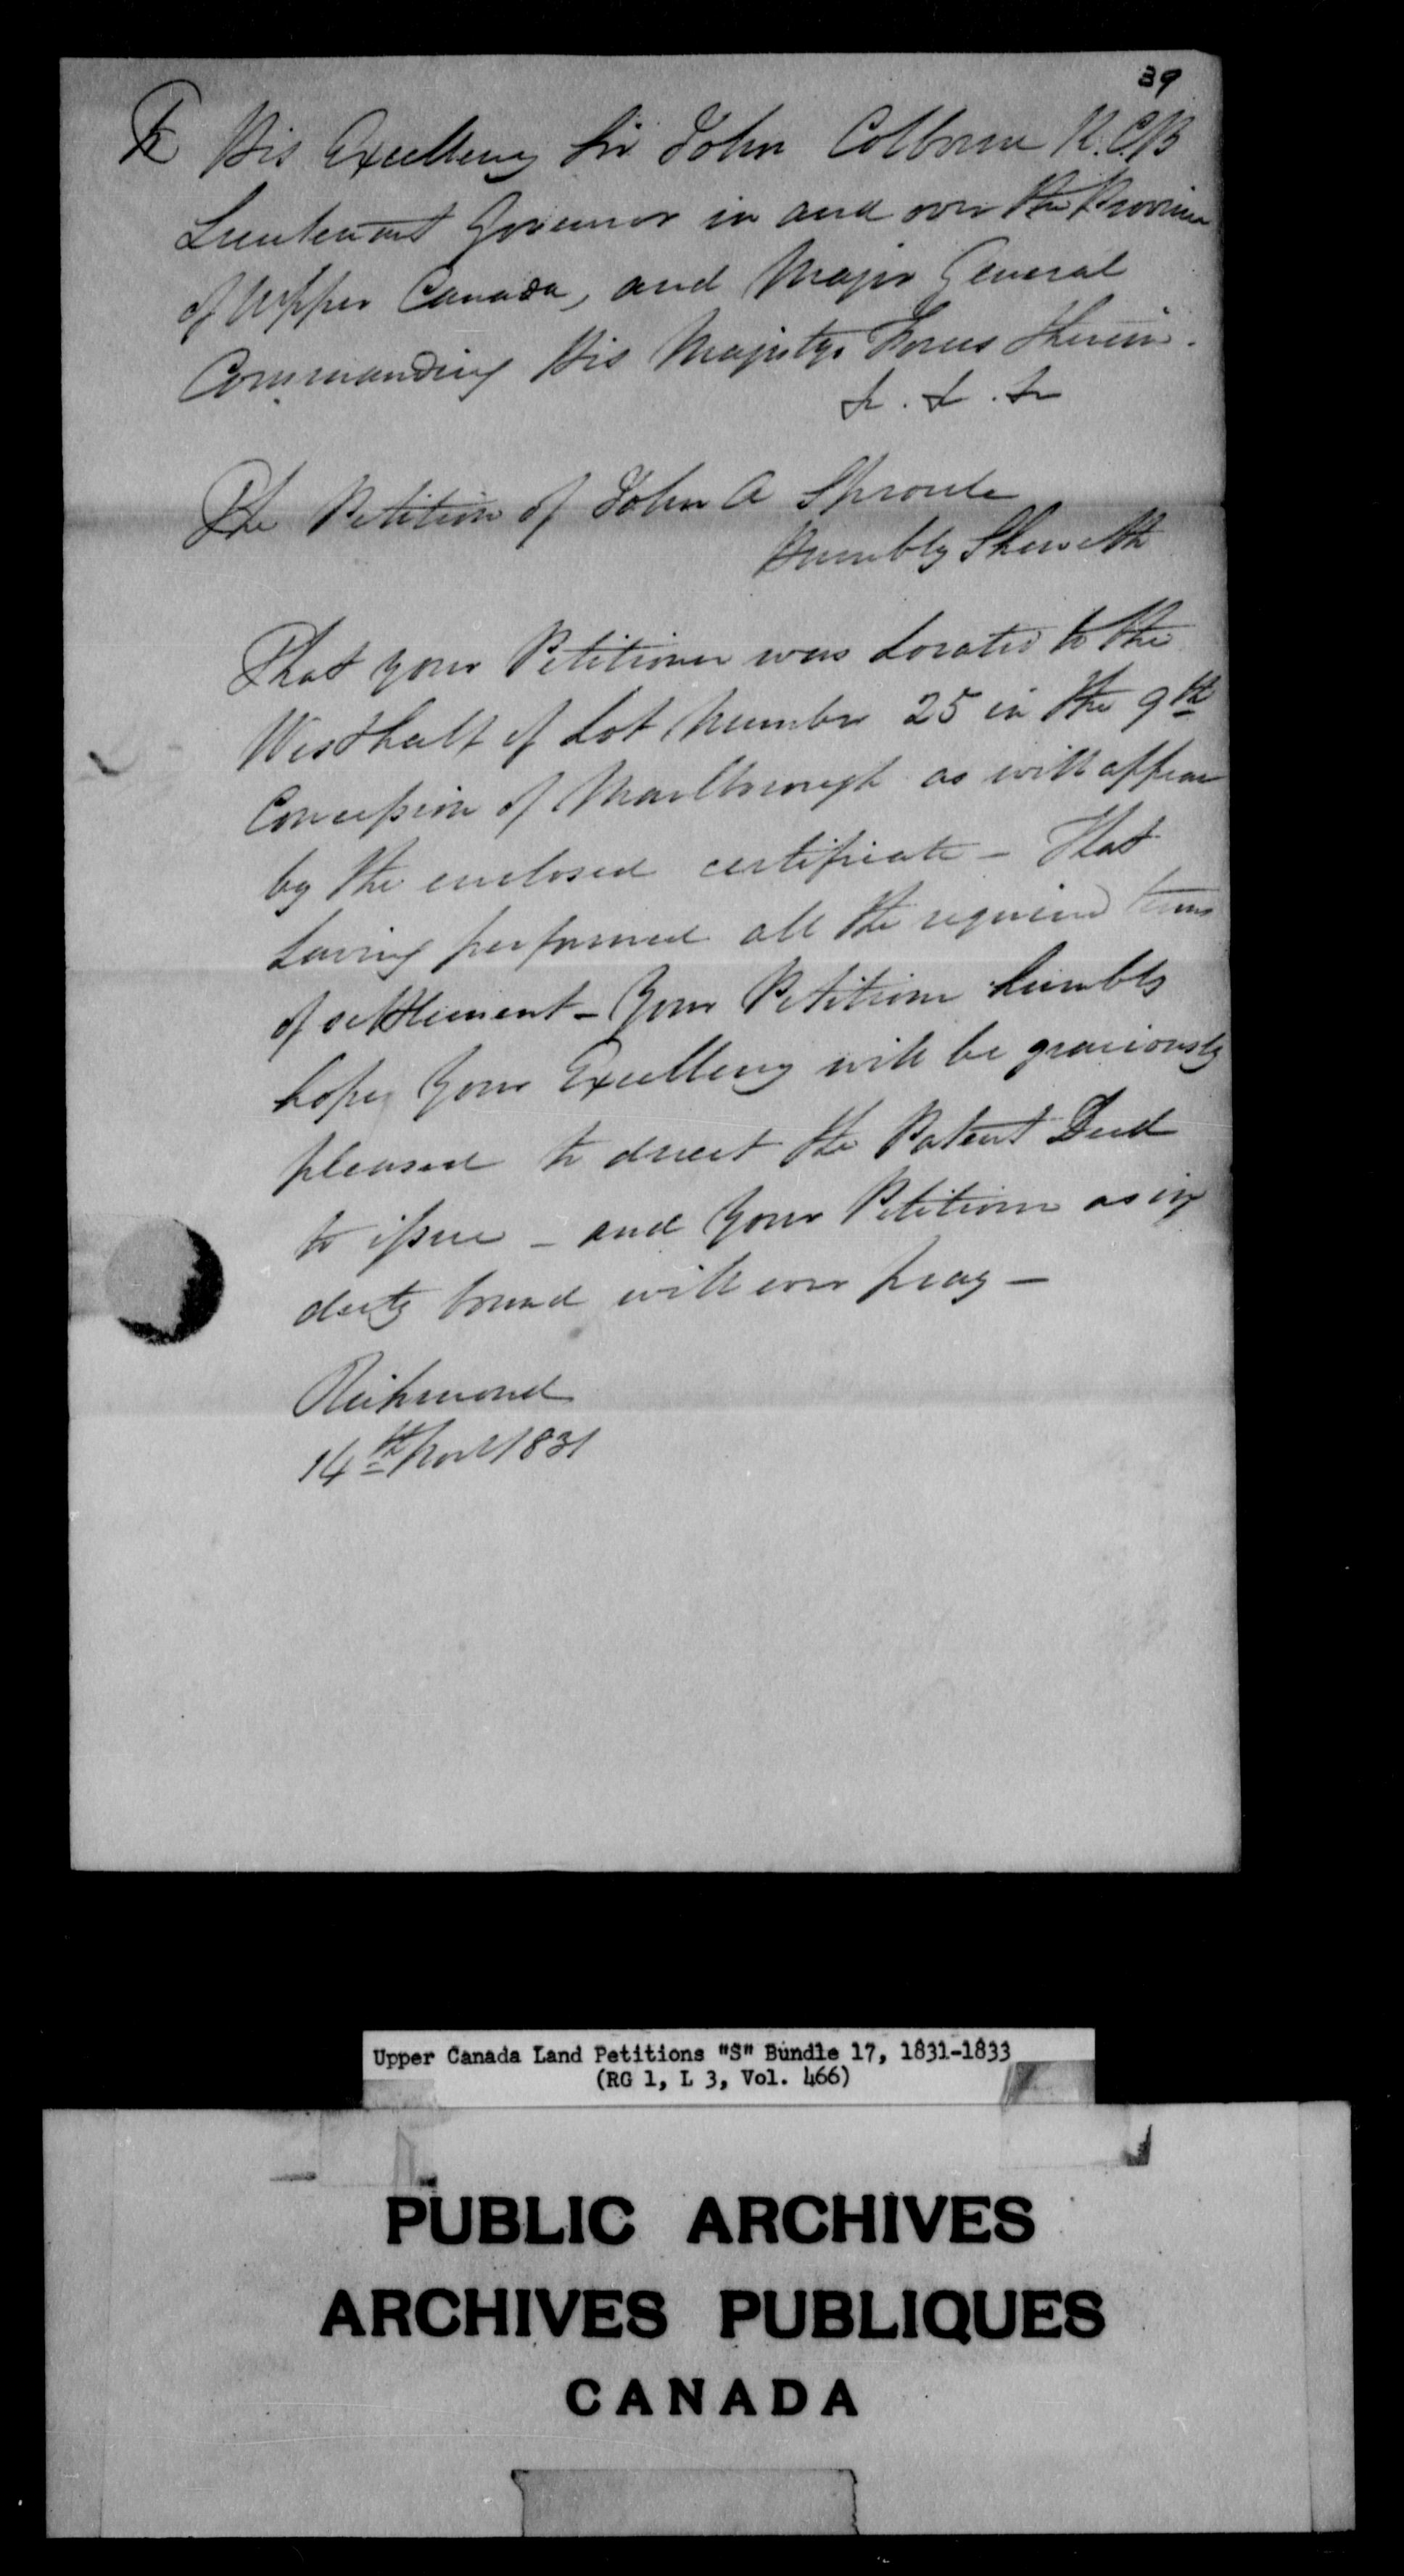 39
To His Excellency Sir John Colborne K.C.B
Lieutenant Governor in and over the Province
of Upper Canada, and Major General
Commanding His Majestys Forces therein.
&c. &c. &c
The Petition of John A Sproule
Humbly Sheweth
That your Petitioner was Located to the
West half of Lot Number 25 in the 9th
Concession of Marlborough as will appear
by the enclosed certificate - That
having performed all the required terms
of settlement - Your Petitioner humbly
hopes Your Excellency will be graciously
pleased to direct the Patent Deed
to issue - and Your Petitioner as in
duty bound will ever pray -
Richmond
14th Novr 1831
Upper Canada Land Petitions "S" Bundle 17, 1831-1833
(RG 1, L 3, Vol. 466)
PUBLIC ARCHIVES
ARCHIVES PUBLIQUES
CANADA